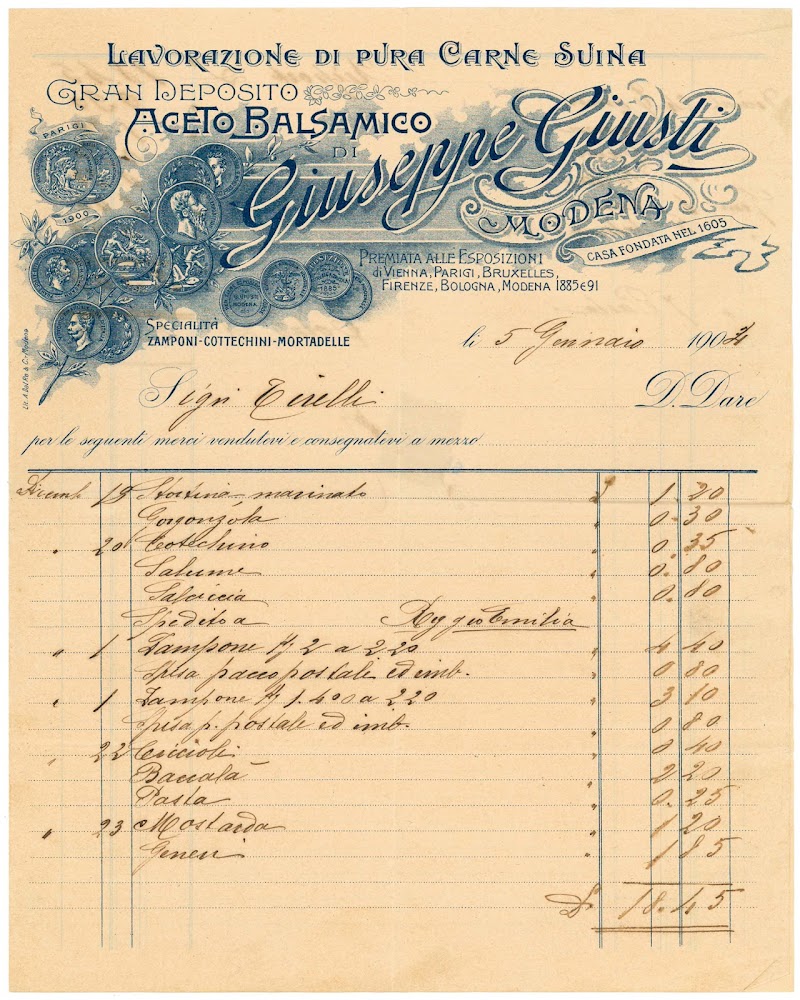 LAVORAZIONE DI PURA CARNE SUINA
GRAN DEPOSITO
ACETO BALSAMICO
DI
Giuseppe Giusti
MODENA
CASA FONDATA NEL 1605
PARIGI
1900
PREMIATA ALLE ESPOSIZIONI
di VIENNA, PARIGI, BRUXELLES,
FIRENZE, BOLOGNA, MODENA 1885 e 91
SPECIALITÀ
ZAMPONI-COTTECHINI-MORTADELLE
li 5 Gennaio 1904
Sigri Tirelli D. Dare
per le seguenti merci vendutevi e consegnatevi a mezzo
19 marinato £ 1 20
Gorgonzola " 0.30
" 20 Cotechino " 0 35
Salume " 0.80
Salciccia " 0.80
Spedito a Reggio Emilia
" 1 Zampone Kg 2 a 2 20 " 4 40
Spesa pacco postali ed imb. " 0 80
" 1 Zampone Kg 1.400 a 2 20 " 3 10
Spesa p. postale ed imb. " 0 80
" 22 Ciccioli " 0 40
Baccalà " 2 20
Pasta " 0.25
" 23 Mostarda " 1 20
Generi " 1 85
£ 18.45